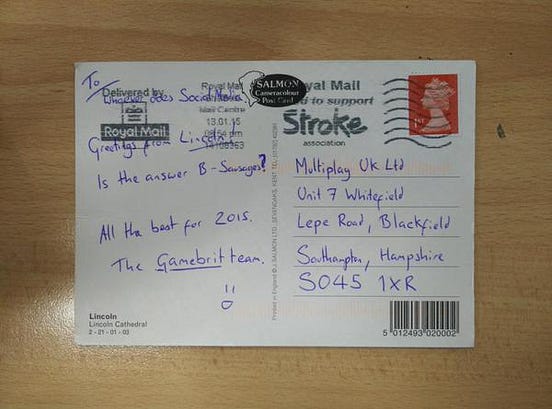 To/
Whoever does Social Media
Greetings from Lincoln!
Is the answer B - Sausages?
All the best for 2015.
The Gamebrit team.
Delivered by
Royal Mail
Royal Mail
Mail Centre
13.01.15
pm
SALMON
Cameracolour
Post Card
Royal Mail
to support
Stroke
association
1ST
Multiplay UK Ltd
Unit 7 Whitefield
Lepe Road, Blackfield
Southampton, Hampshire
SO45 1XR
Printed in England © J. SALMON LTD., SEVENOAKS, KENT. TEL: (01732) 452381
Lincoln
Lincoln Cathedral
2 - 21 - 01 - 03
5 012493 020002